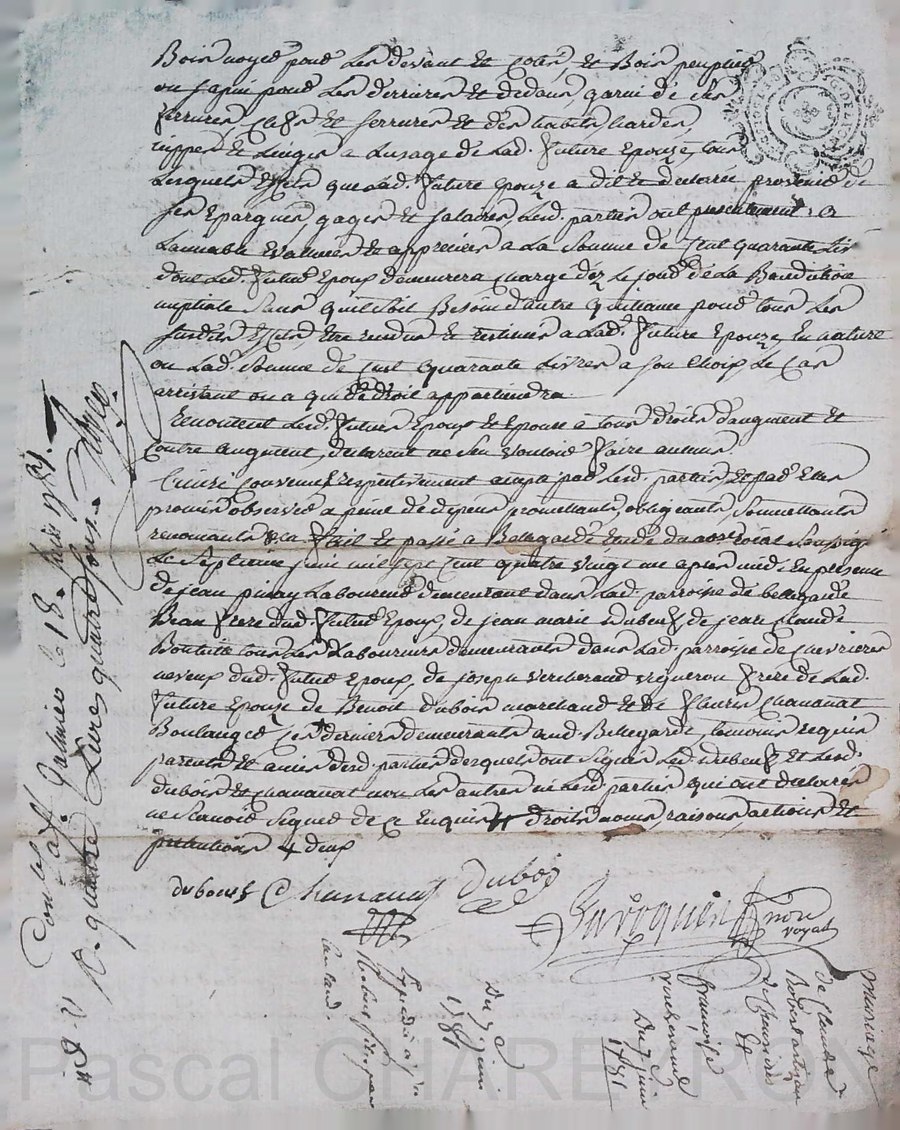 Bois noyer pour les devant et cotés, et Bois peuplier
ou sapin pour les derrieres et dedans, garni de ses
ferrures, clefs et serrures et des habits, hardes,
nippes et Linges a Lusage de Lad. future Epouze, tous
Lesquels effets que Lad. future Epouze a dit et declaré provenir de
ses Epargnes, gages et salaires, Lesd. parties ont presentement a
Lamiable Evalués et appreciés a La somme de Cent quarante Livres
dont Led. futur Epoux demeurera chargé dez Le jour de La Benediction
nuptiale sans quil soit Besoin dautre quittance pour tous Les
susdits effets, Etre rendus et restitués a Lad. future Epouze, En nature
ou Lad. somme de Cent quarante Livres a son choix Le Cas
arrivant ou a qui de droit appartiendra.
Renoncent Lesd. futurs Epoux et Epouse a tous droits daugment et
Contre augment, declarent ne Sen vouloir faire aucuns.
Ainsi Convenu respectivement accepté par Lesd. parties, et par Elles
promis observer a peine de depens promettants, obligeants, soumettants
renonçants &ca. fait et passé a Bellegarde Etude du Soussigné
Le Septieme juin mil sept Cent quatre vingt un apres midi, En presence
de jean pinay Laboureur demeurant dans Lad. parroisse de belegarde
Beau frere dud. futur Epoux, de jean marie dubeuf, de jean Claude
tous Les Laboureurs demeurants dans Lad. parroisse de Chevrieres
neveux dud. futur Epoux, de joseph vercherand vigneron frere de Lad.
future Epouze de Benoit dubois marchand et de Chananat
Boulanger Ces derniers demeurants aud. Bellegarde temoins requis
parents et amis desd. parties desquels ont Signés Led. dubeuf et Lesd.
dubois et Chananat non Les autres ni Lesd. parties qui ont declarés
ne Scavoir Signer de ce Enquis droits noms, raisons, actions et
petentions deux
dubouef Chananat Dubois
Gavoquin
non
voyat
Controllé a St. Galmier le 18 juin 1781.
R. quatre Livres quatre sols
Mariage
de Claude
et
françoise
vercherand
Du 7 juin
1781
Du 7
juin
1781
Expedié